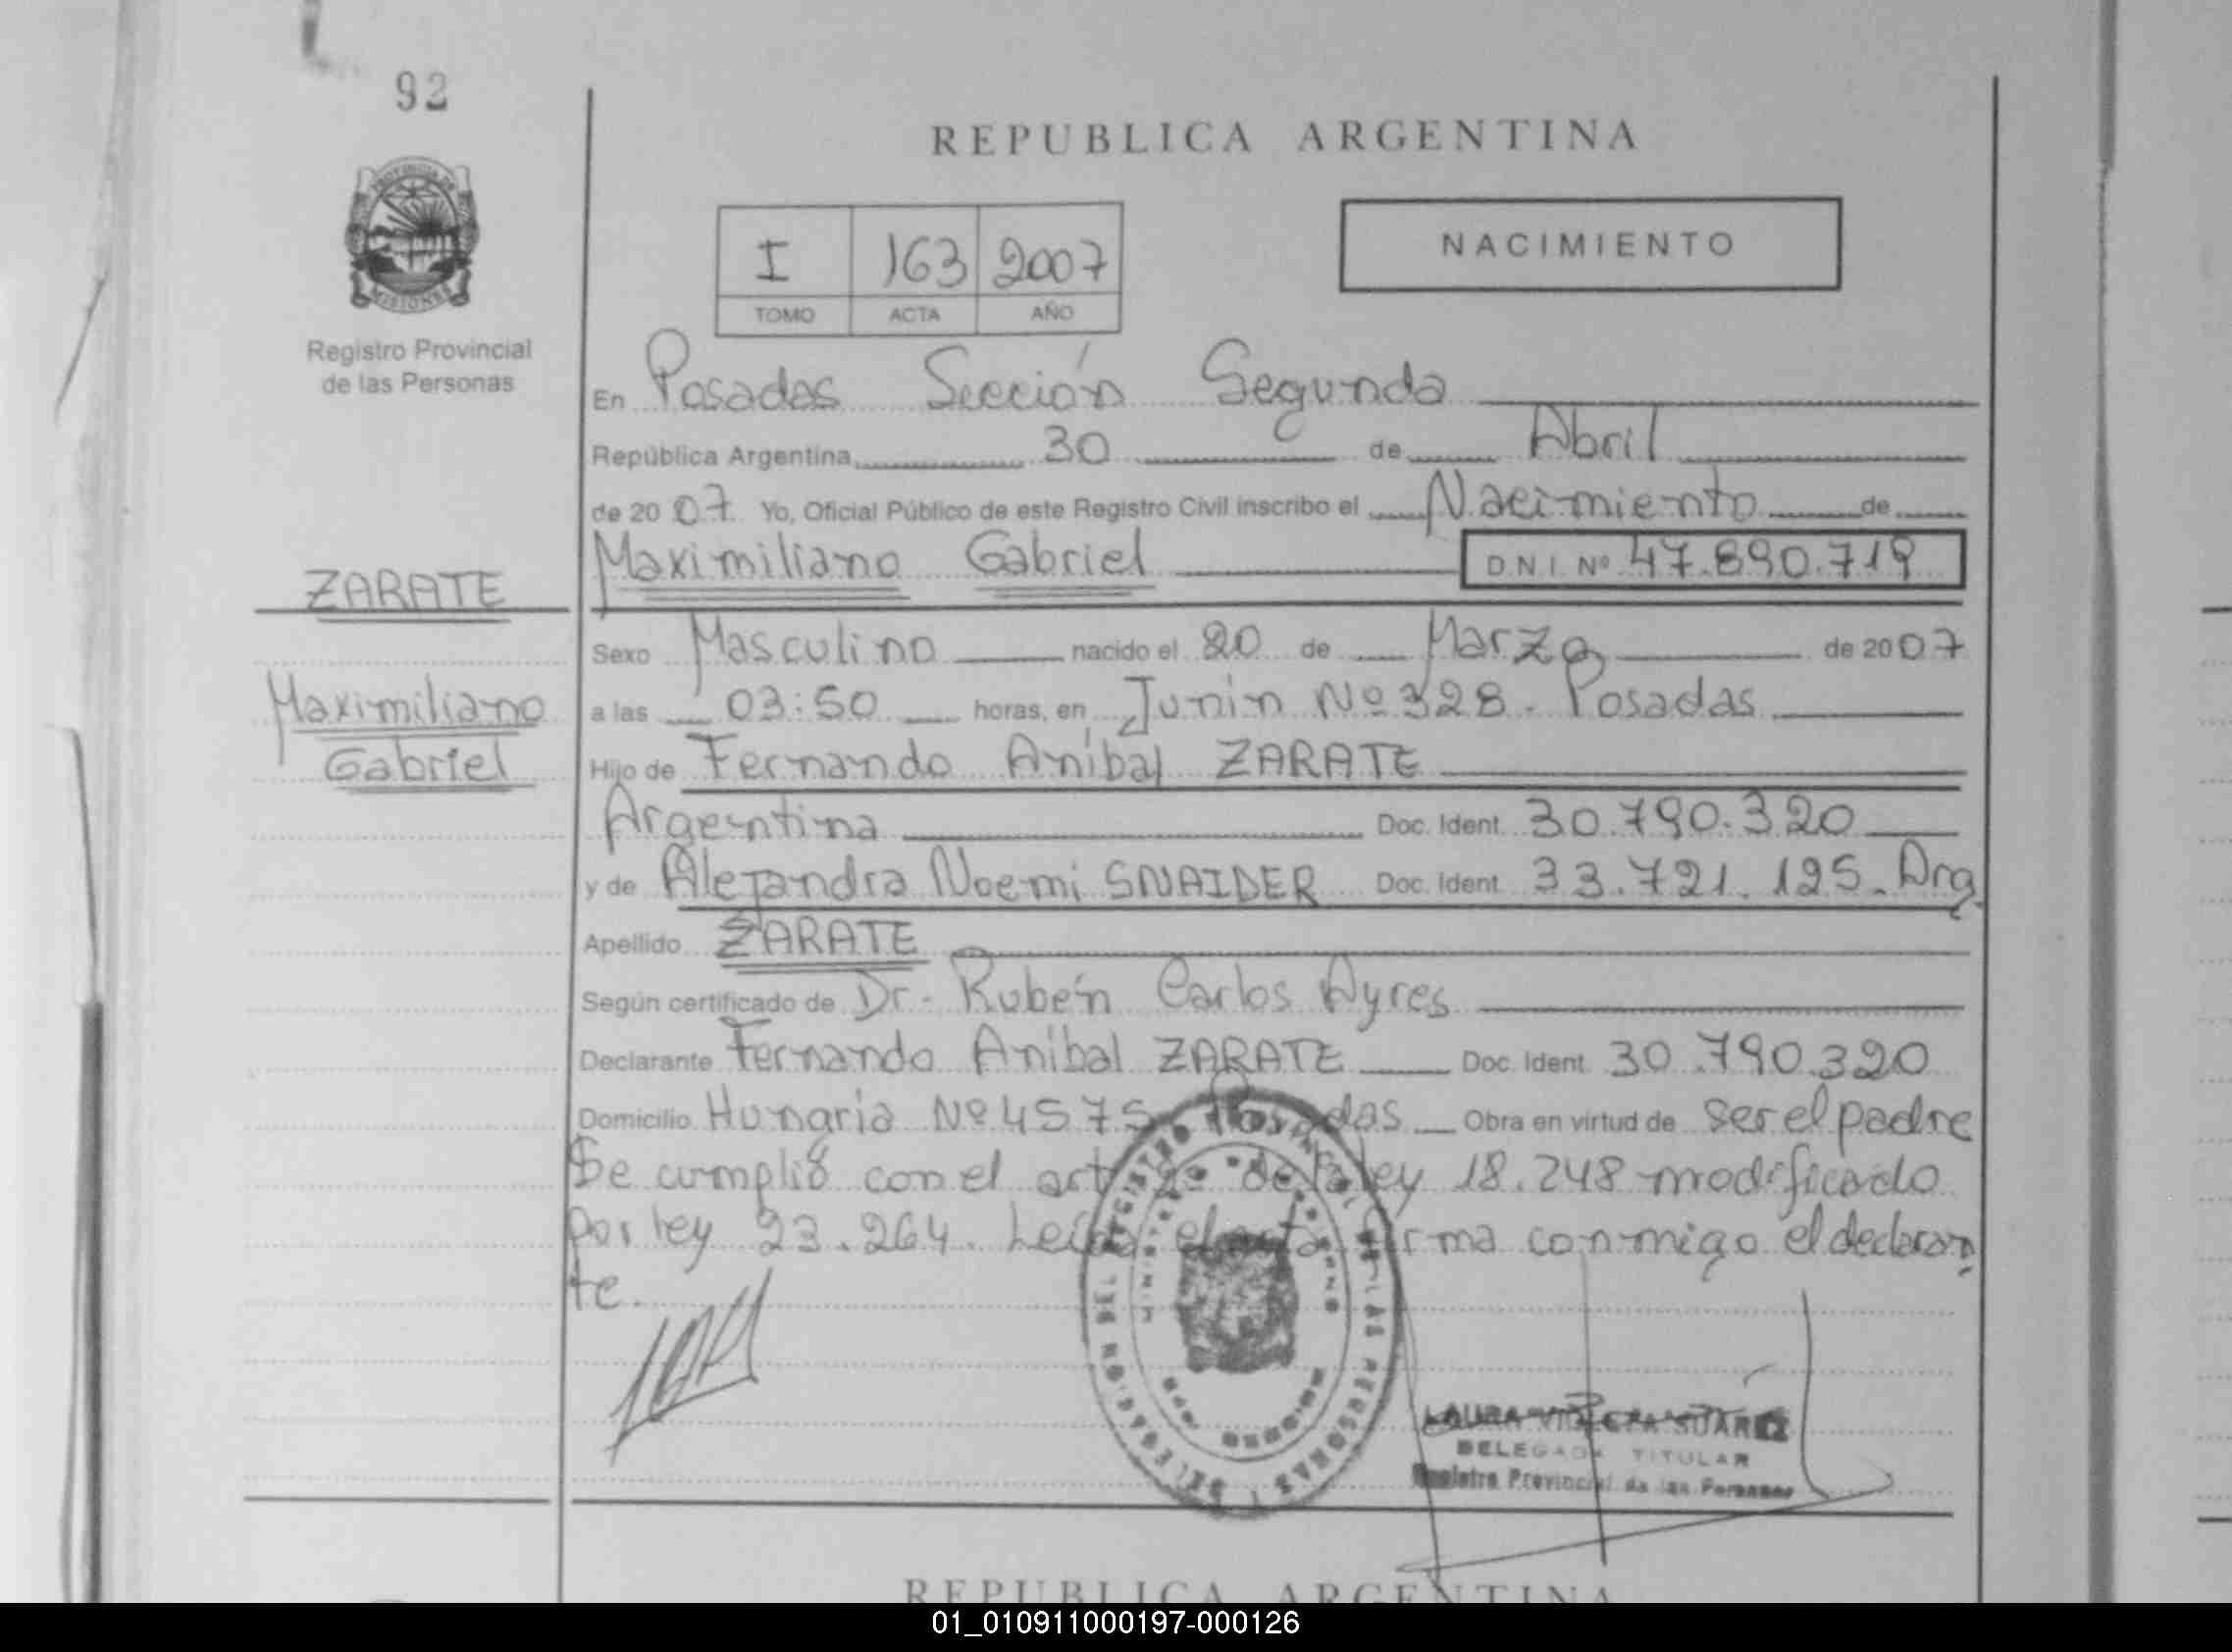 92
REPUBLICA ARGENTINA
I 163 2007
TOMO ACTA AÑO
NACIMIENTO
PROVINCIA DE
MISIONES
Registro Provincial
de las Personas
En Posadas Sección Segunda
República Argentina, 30 de Abril
de 2007 Yo, Oficial Público de este Registro Civil inscribo el Nacimiento de
Maximiliano Gabriel D.N.I. Nº 47.890.719
ZARATE
Maximiliano
Gabriel
Sexo Masculino nacido el 20 de Marzo de 2007
a las 03:50 horas, en Junin Nº 328. Posadas
Hijo de Fernando Aníbal ZARATE
Argentina Doc. Ident. 30.790.320
y de Alejandra Noemi SNAIDER Doc. Ident. 33.721.125. Arg.
Apellido ZARATE
Según certificado de Dr. Rubén Carlos Ayres
Declarante Fernando Aníbal ZARATE Doc. Ident. 30.790.320
Domicilio Hungria Nº 4575 Posadas Obra en virtud de ser el padre
Se cumplió con el art de la ley 18.248 modificado
por ley 23.264. Leída el acta firma conmigo el declaran
te.
LAURA SUAREZ
DELEGADA TITULAR
Registro Provincial de las Personas
REPUBLICA ARGENTINA
01_010911000197-000126